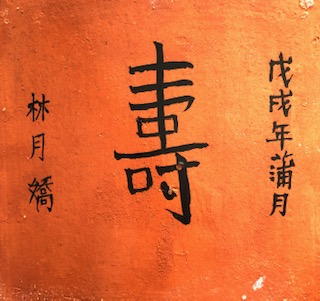 戊戌年蒲月
壽
林月嬌